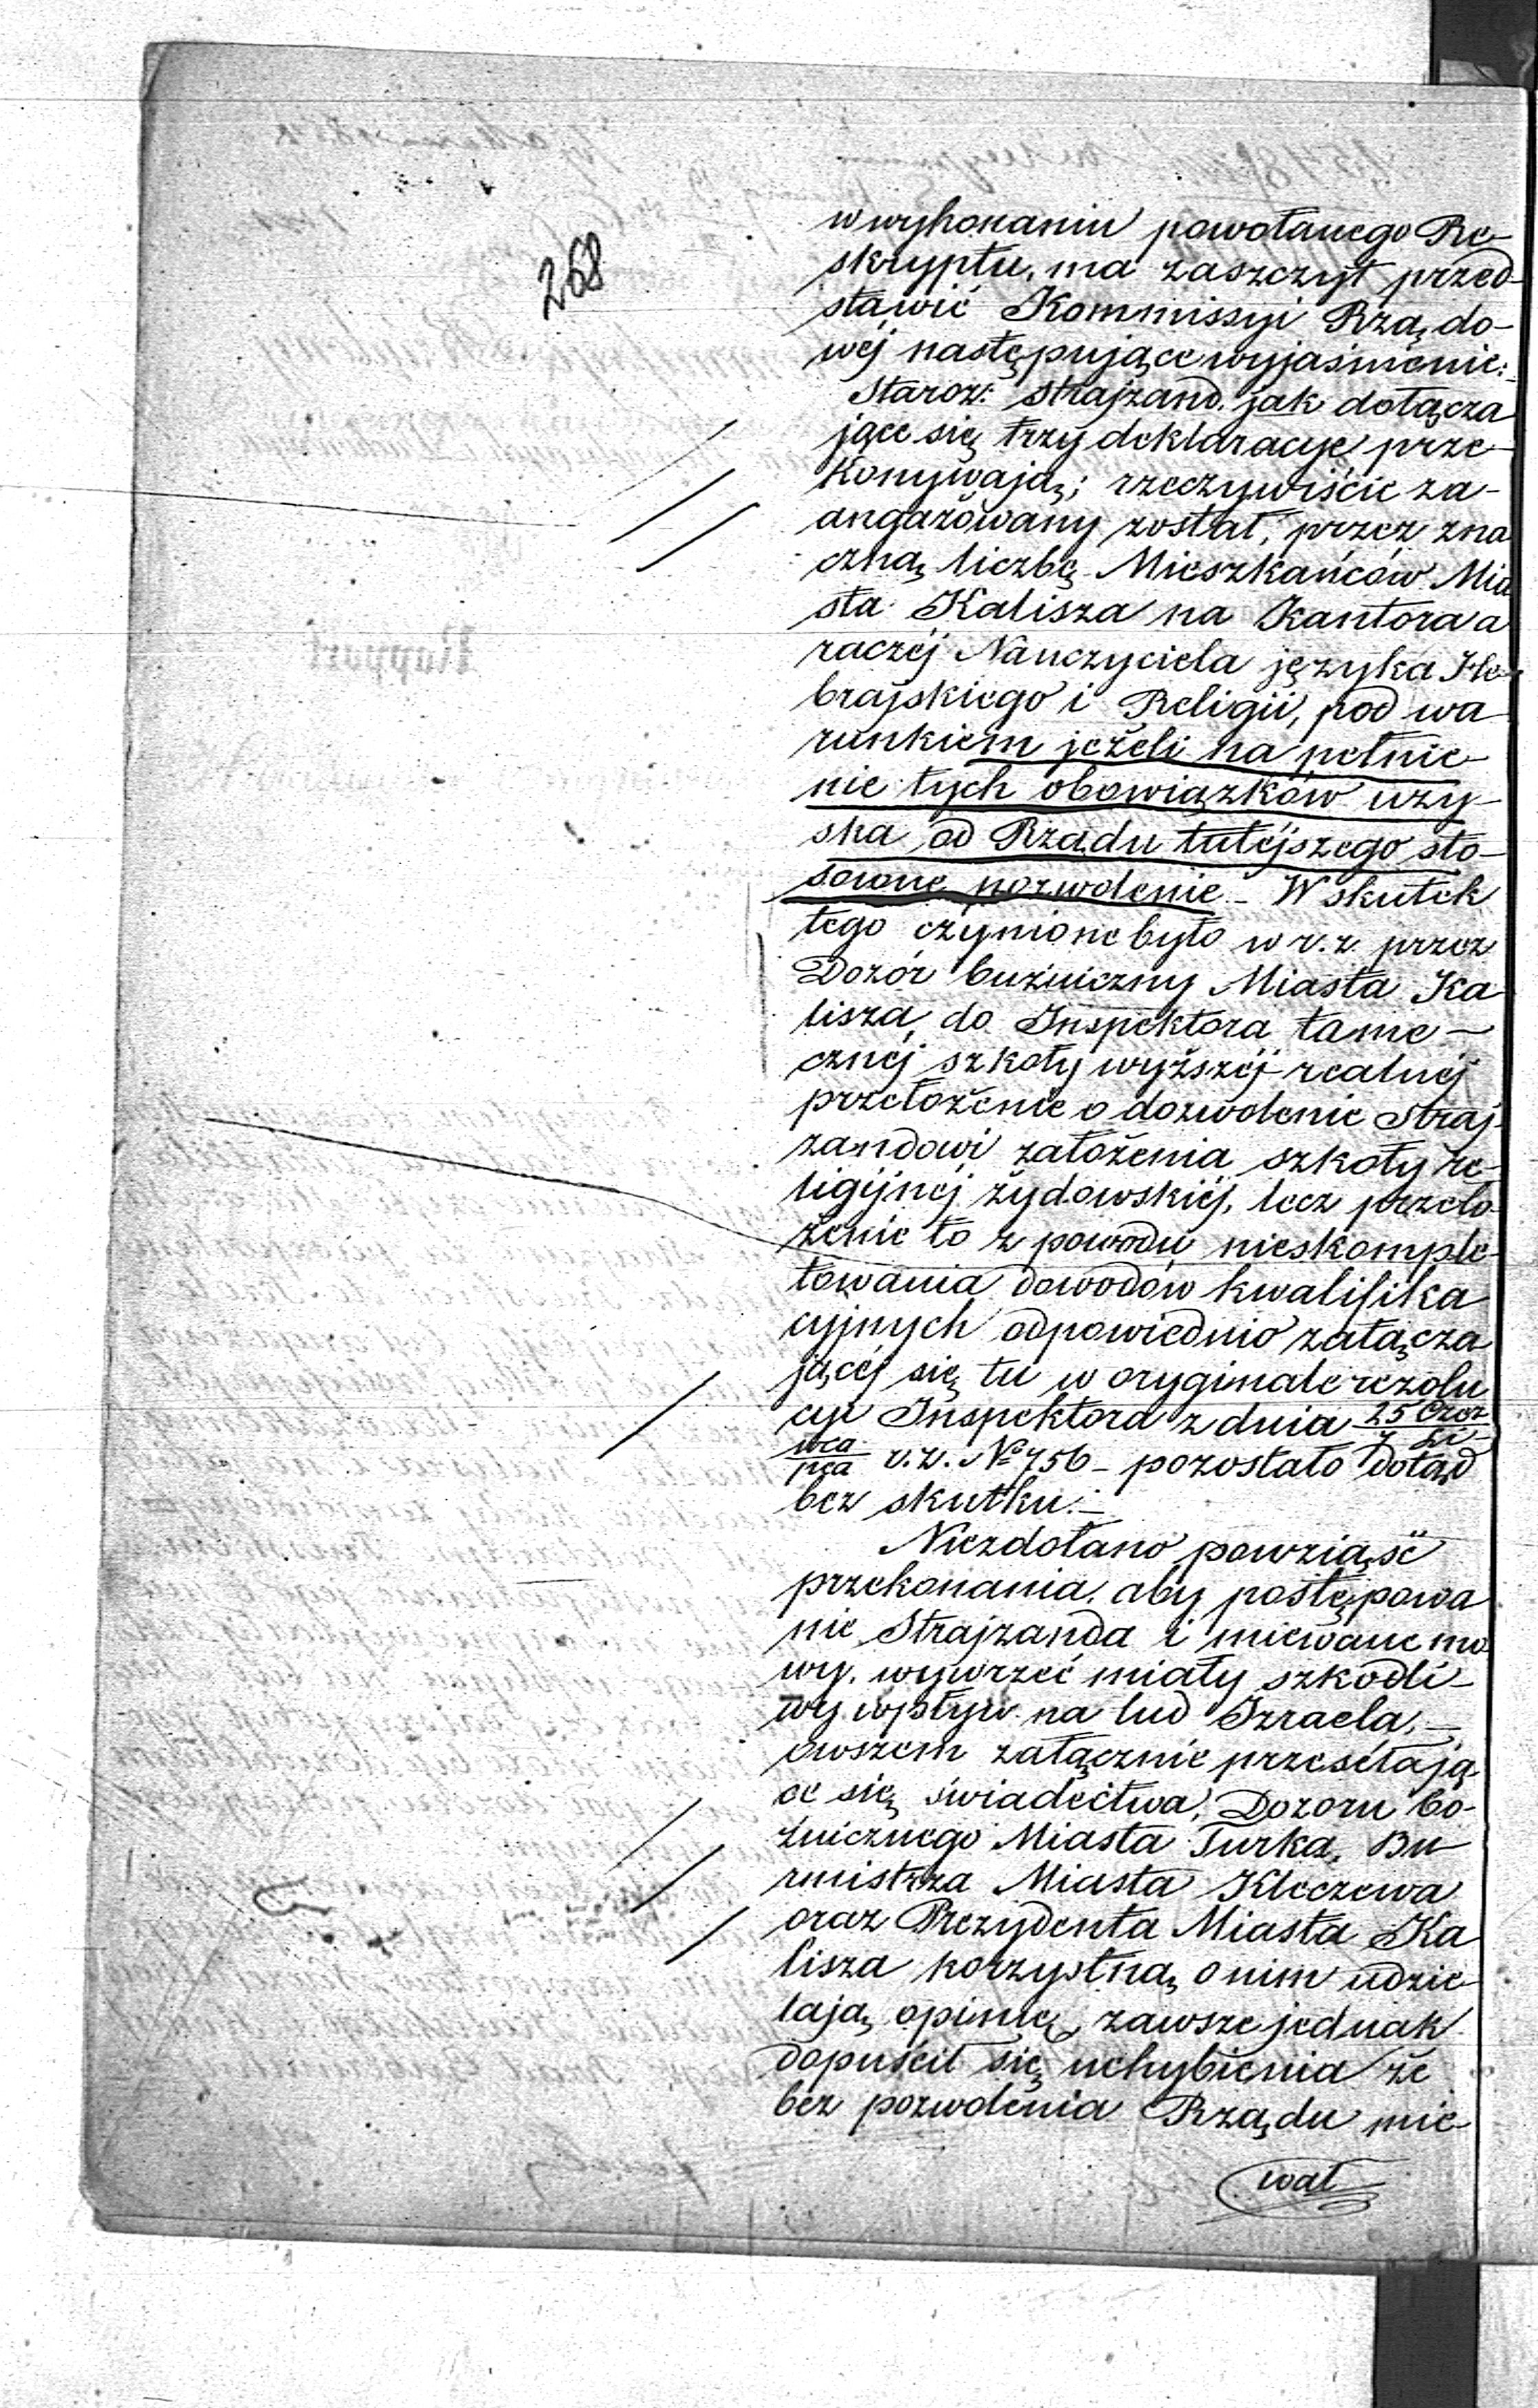 268
w wykonaniu powołanego Re-
skryptu, ma zaszczyt przed-
stawić Kommissyi Rządo-
wéj następujące wyjaśnienie:
Staroz: Strajzand, jak dołącza
jące się trzy deklaracye prze-
konywają; rzeczywiście za-
angażowany został, przez zna
czną liczbę Mieszkańców Mia
sta Kalisza na Kantora a
raczéj Nauczyciela języka He-
brajskiego i Religii, pod wa
runkiem jeżeli na pełnie-
nie tych obowiązków uzy-
ska od Rządu tutéjszego sto-
sowne pozwolenie – W skutek
tego czynione było w r. z. przez
Dozór bużniczny Miasta Ka
lisza, do Inspektora tame-
cznéj szkoły wyższéj realnéj
przełożenie o dozwolenie Straj-
zandowi założenia szkoły re-
ligijnéj żydowskiéj, lecz przeło-
żenie to z powodu nieskomple-
towania dowodów kwalifika
cyjnych odpowiednio załącza
jącéj się tu w oryginale rezolu
cyi Inspektora z dnia 25 Czer
7 Li-
wca
pca r. z. Nº 756 – pozostało dotąd
bez skutku. –
Niezdołano powziąść
przekonania, aby postępowa
nie Strajzanda i miewane mo
wy, wywrzeć miały szkodli-
wy wpływ na lud Izraela, –
owszem załącznie przesełają
ce się świadectwa, Dozoru bo-
żnicznego Miasta Turka, Bu
rmistrza Miasta Kleczewa
oraz Prezydenta Miasta Ka
lisza korzystną o nim udzie
lają opinię, zawsze jednak
dopuścił się uchybienia że
bez pozwolenia Rządu mie-
wał